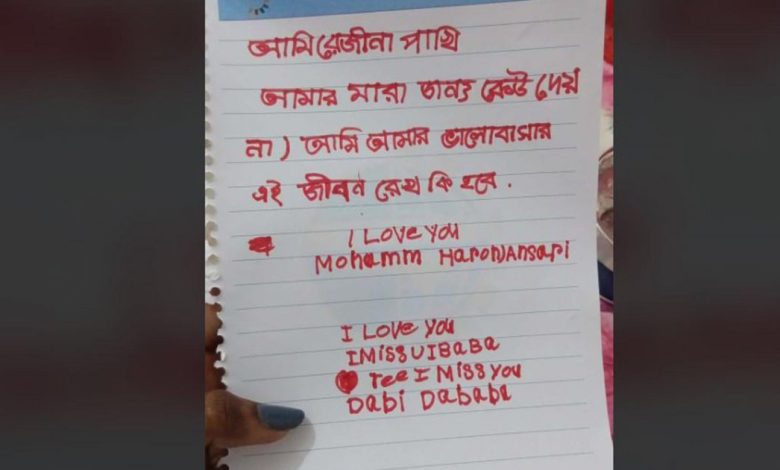 আমি রেজীনা পাখি
আমার মারা জন্য কেউ দেয়
না) আমি আমার ভালোবাসার
এই জীবন রেখ কি হবে.
I Love you
Mohamm HaronAnsari
I Love you
IMissUIBaBa
Tee I Miss you
Dabi Dababa